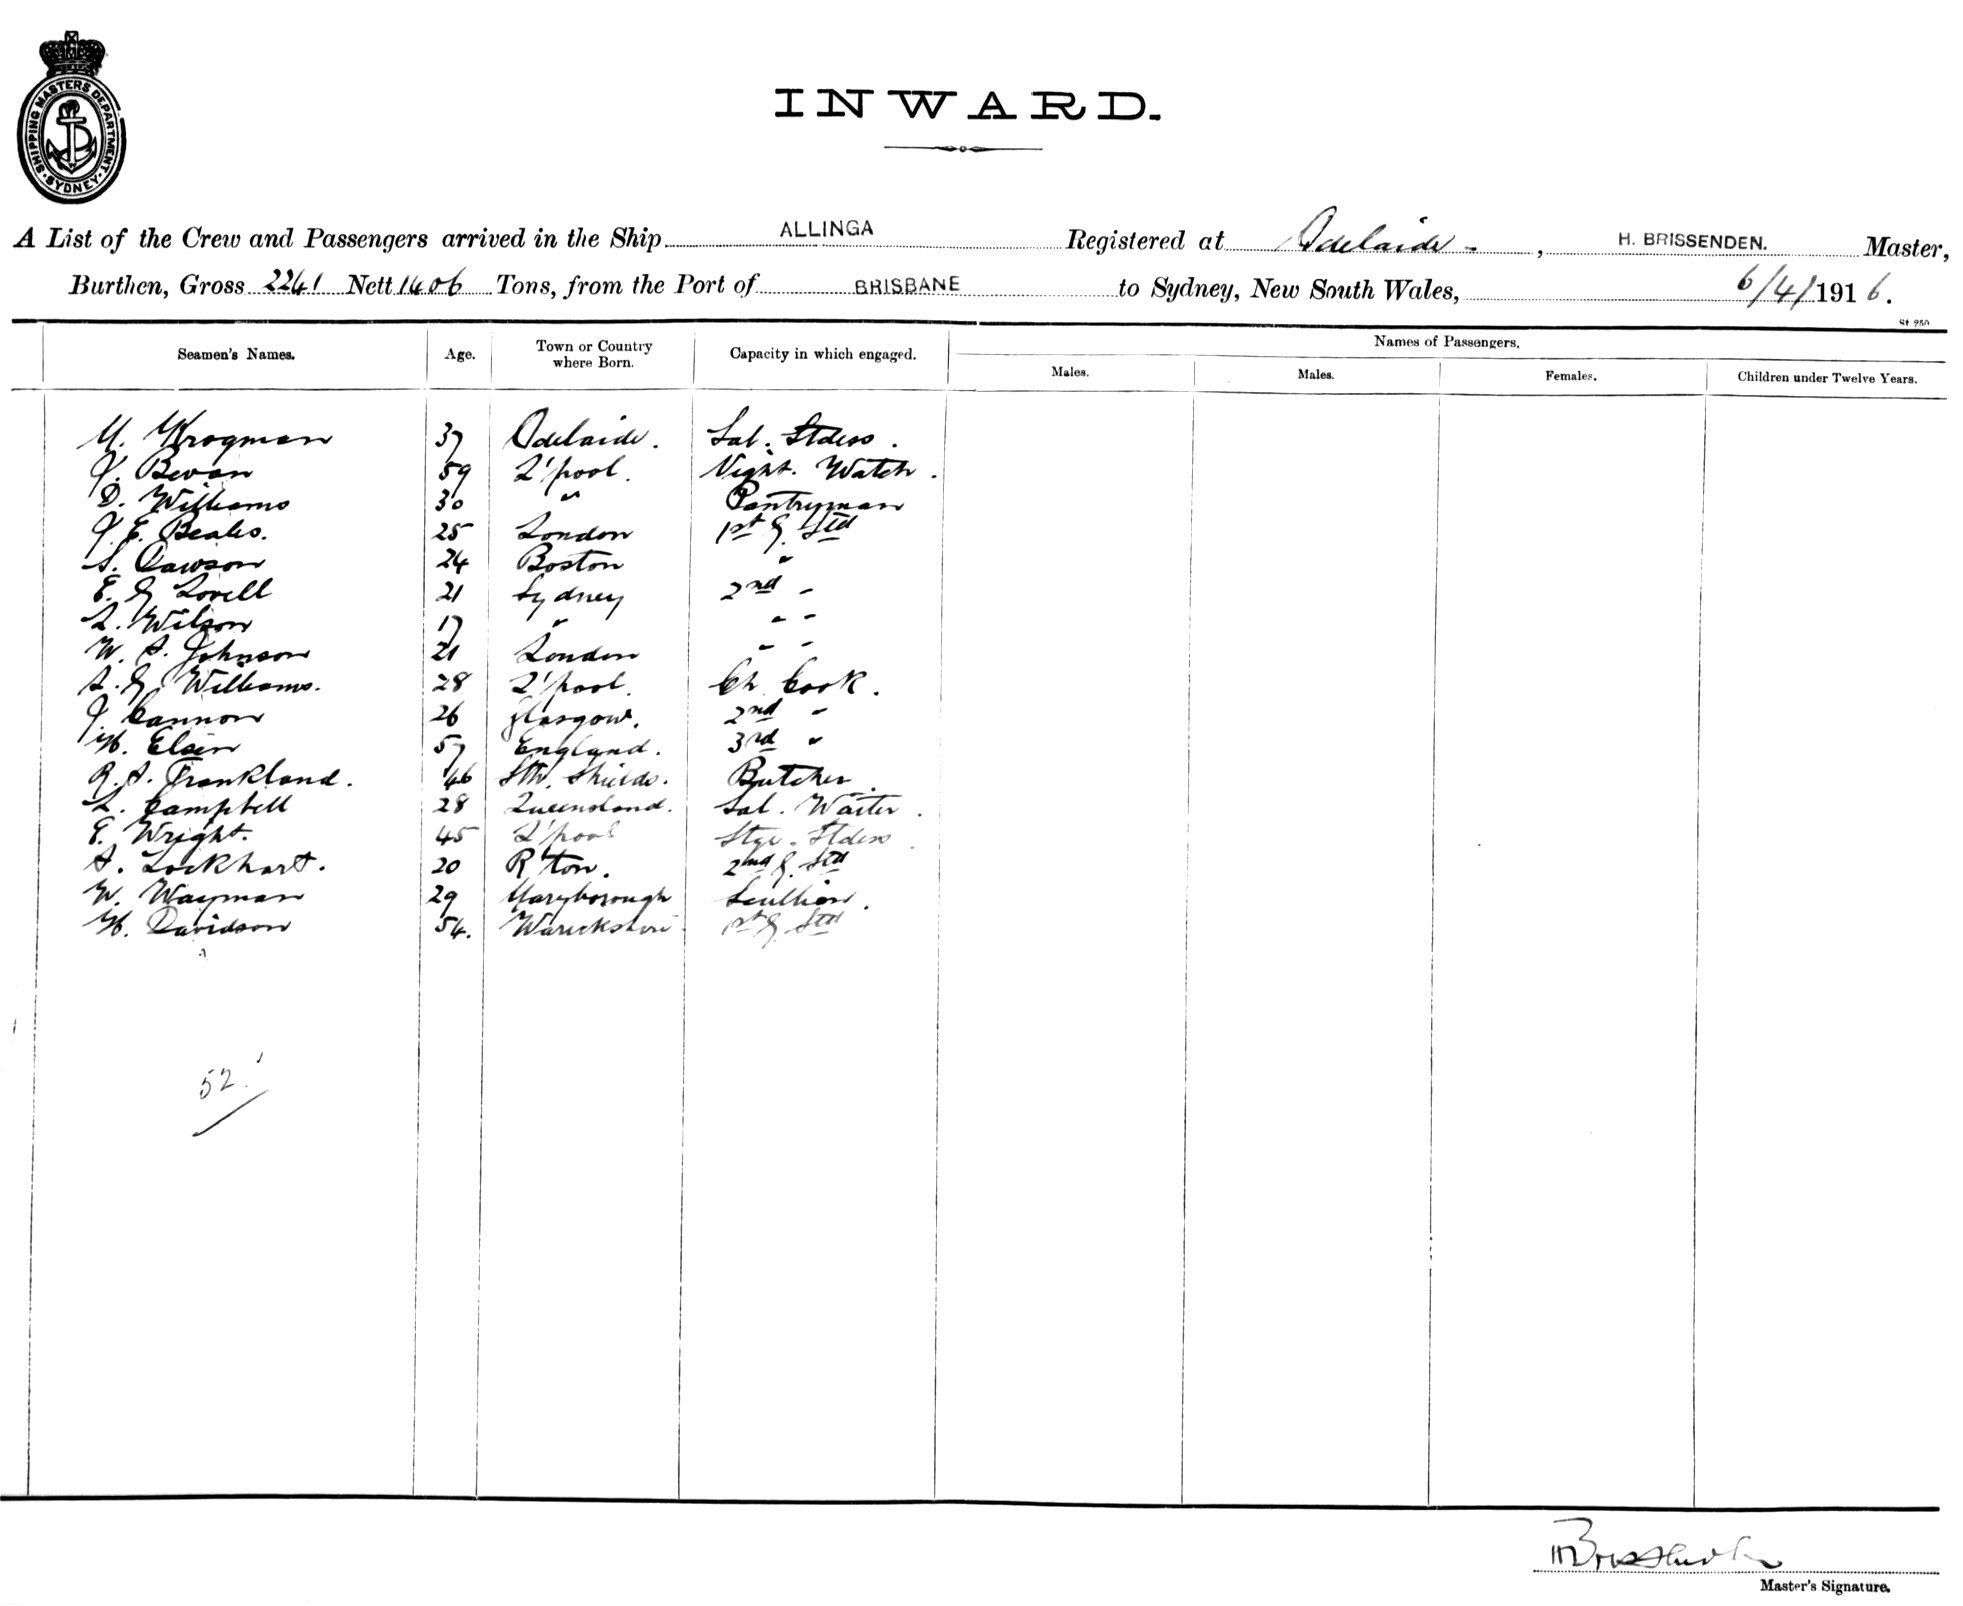 SHIPPING MASTERS DEPARTMENT · SYDNEY ·
INWARD.
A List of the Crew and Passengers arrived in the Ship ALLINGA Registered at Adelaide, H. BRISSENDEN. Master,
Burthen, Gross 2241 Nett 1406 Tons, from the Port of BRISBANE to Sydney, New South Wales, 6/4/1916.
St 950
Seamen's Names. Age. Town or Country where Born. Capacity in which engaged. Names of Passengers.
Males. Males. Females. Children under Twelve Years.
M. Krogman 37 Adelaide. Sal. Stdess.
J. Bevan 59 L'pool. Night. Watch.
D. Williams 30 " Pantryman
J. E. Beales. 25 London 1st G. Std
S. Dawson 24 Boston "
E. G. Lovell 21 Sydney 2nd "
L. Wilson 17 " " "
W. A. Johnson 21 London " "
A. G. Williams. 28 L'pool. Ch. Cook.
J. Cannon 26 Glasgow. 2nd "
H. 57 England. 3rd "
R. A. Frankland. 46 Sth. Shields. Butcher.
L. Campbell 28 Queensland. Sal. Waiter.
E. Wright. 45 L'pool Stge. Stdess.
A. Lockhart. 20 R'ton. 2nd G. Std
W. Wayman 29 Maryborough Scullion.
H. Davidson 54. Warickshire 1st G. Std
52
Master's Signature.